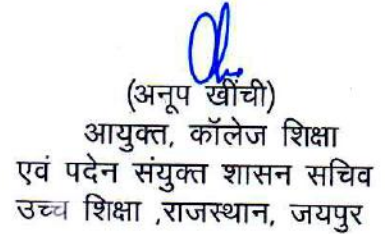 (अनूप खींची)
आयुक्त, कॉलेज शिक्षा
एवं पदेन संयुक्त शासन सचिव
उच्च शिक्षा ,राजस्थान, जयपुर